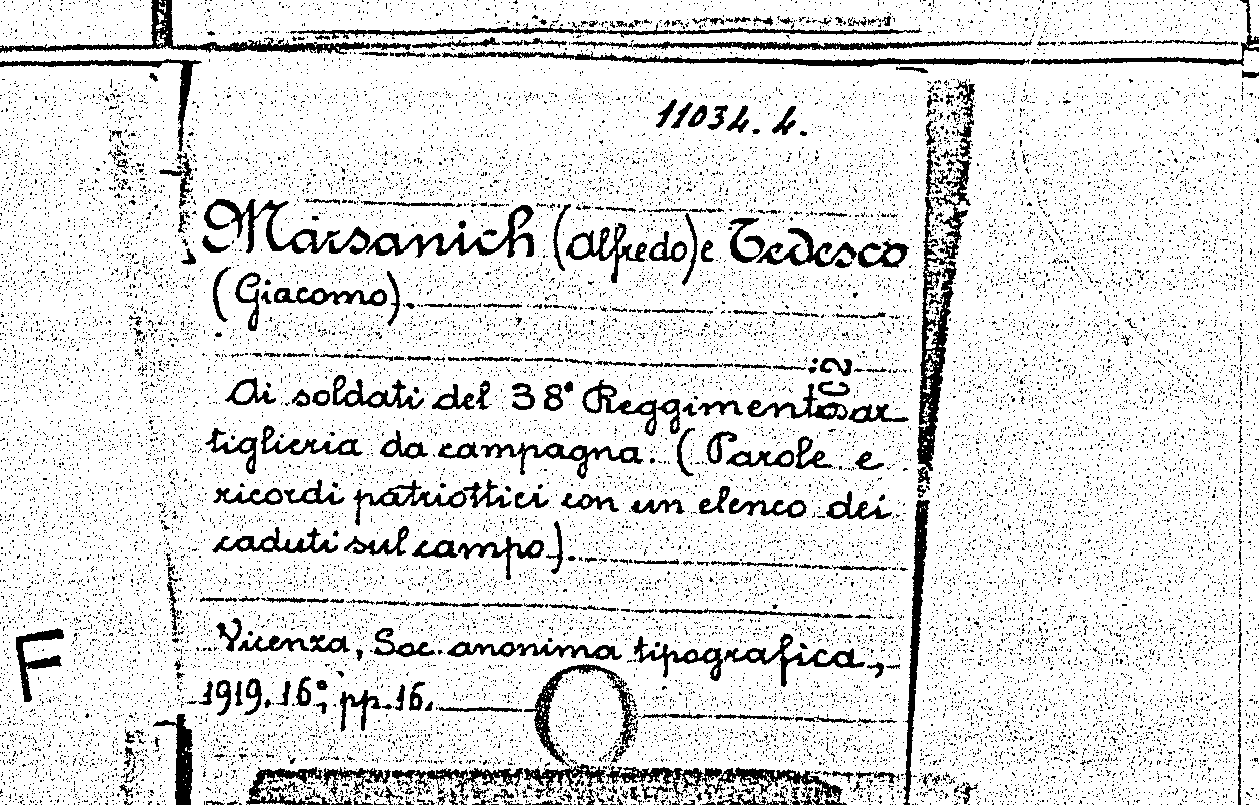 11034. 4.
Marsanich (Alfredo) e Tedesco
(Giacomo).
Ai soldati del 38° Reggimento ar
tiglieria da campagna. (Parole e
ricordi patriottici con un elenco dei
caduti sul campo).
Vicenza, Soc. anonima tipografica,
1919. 16°, pp. 16.
F